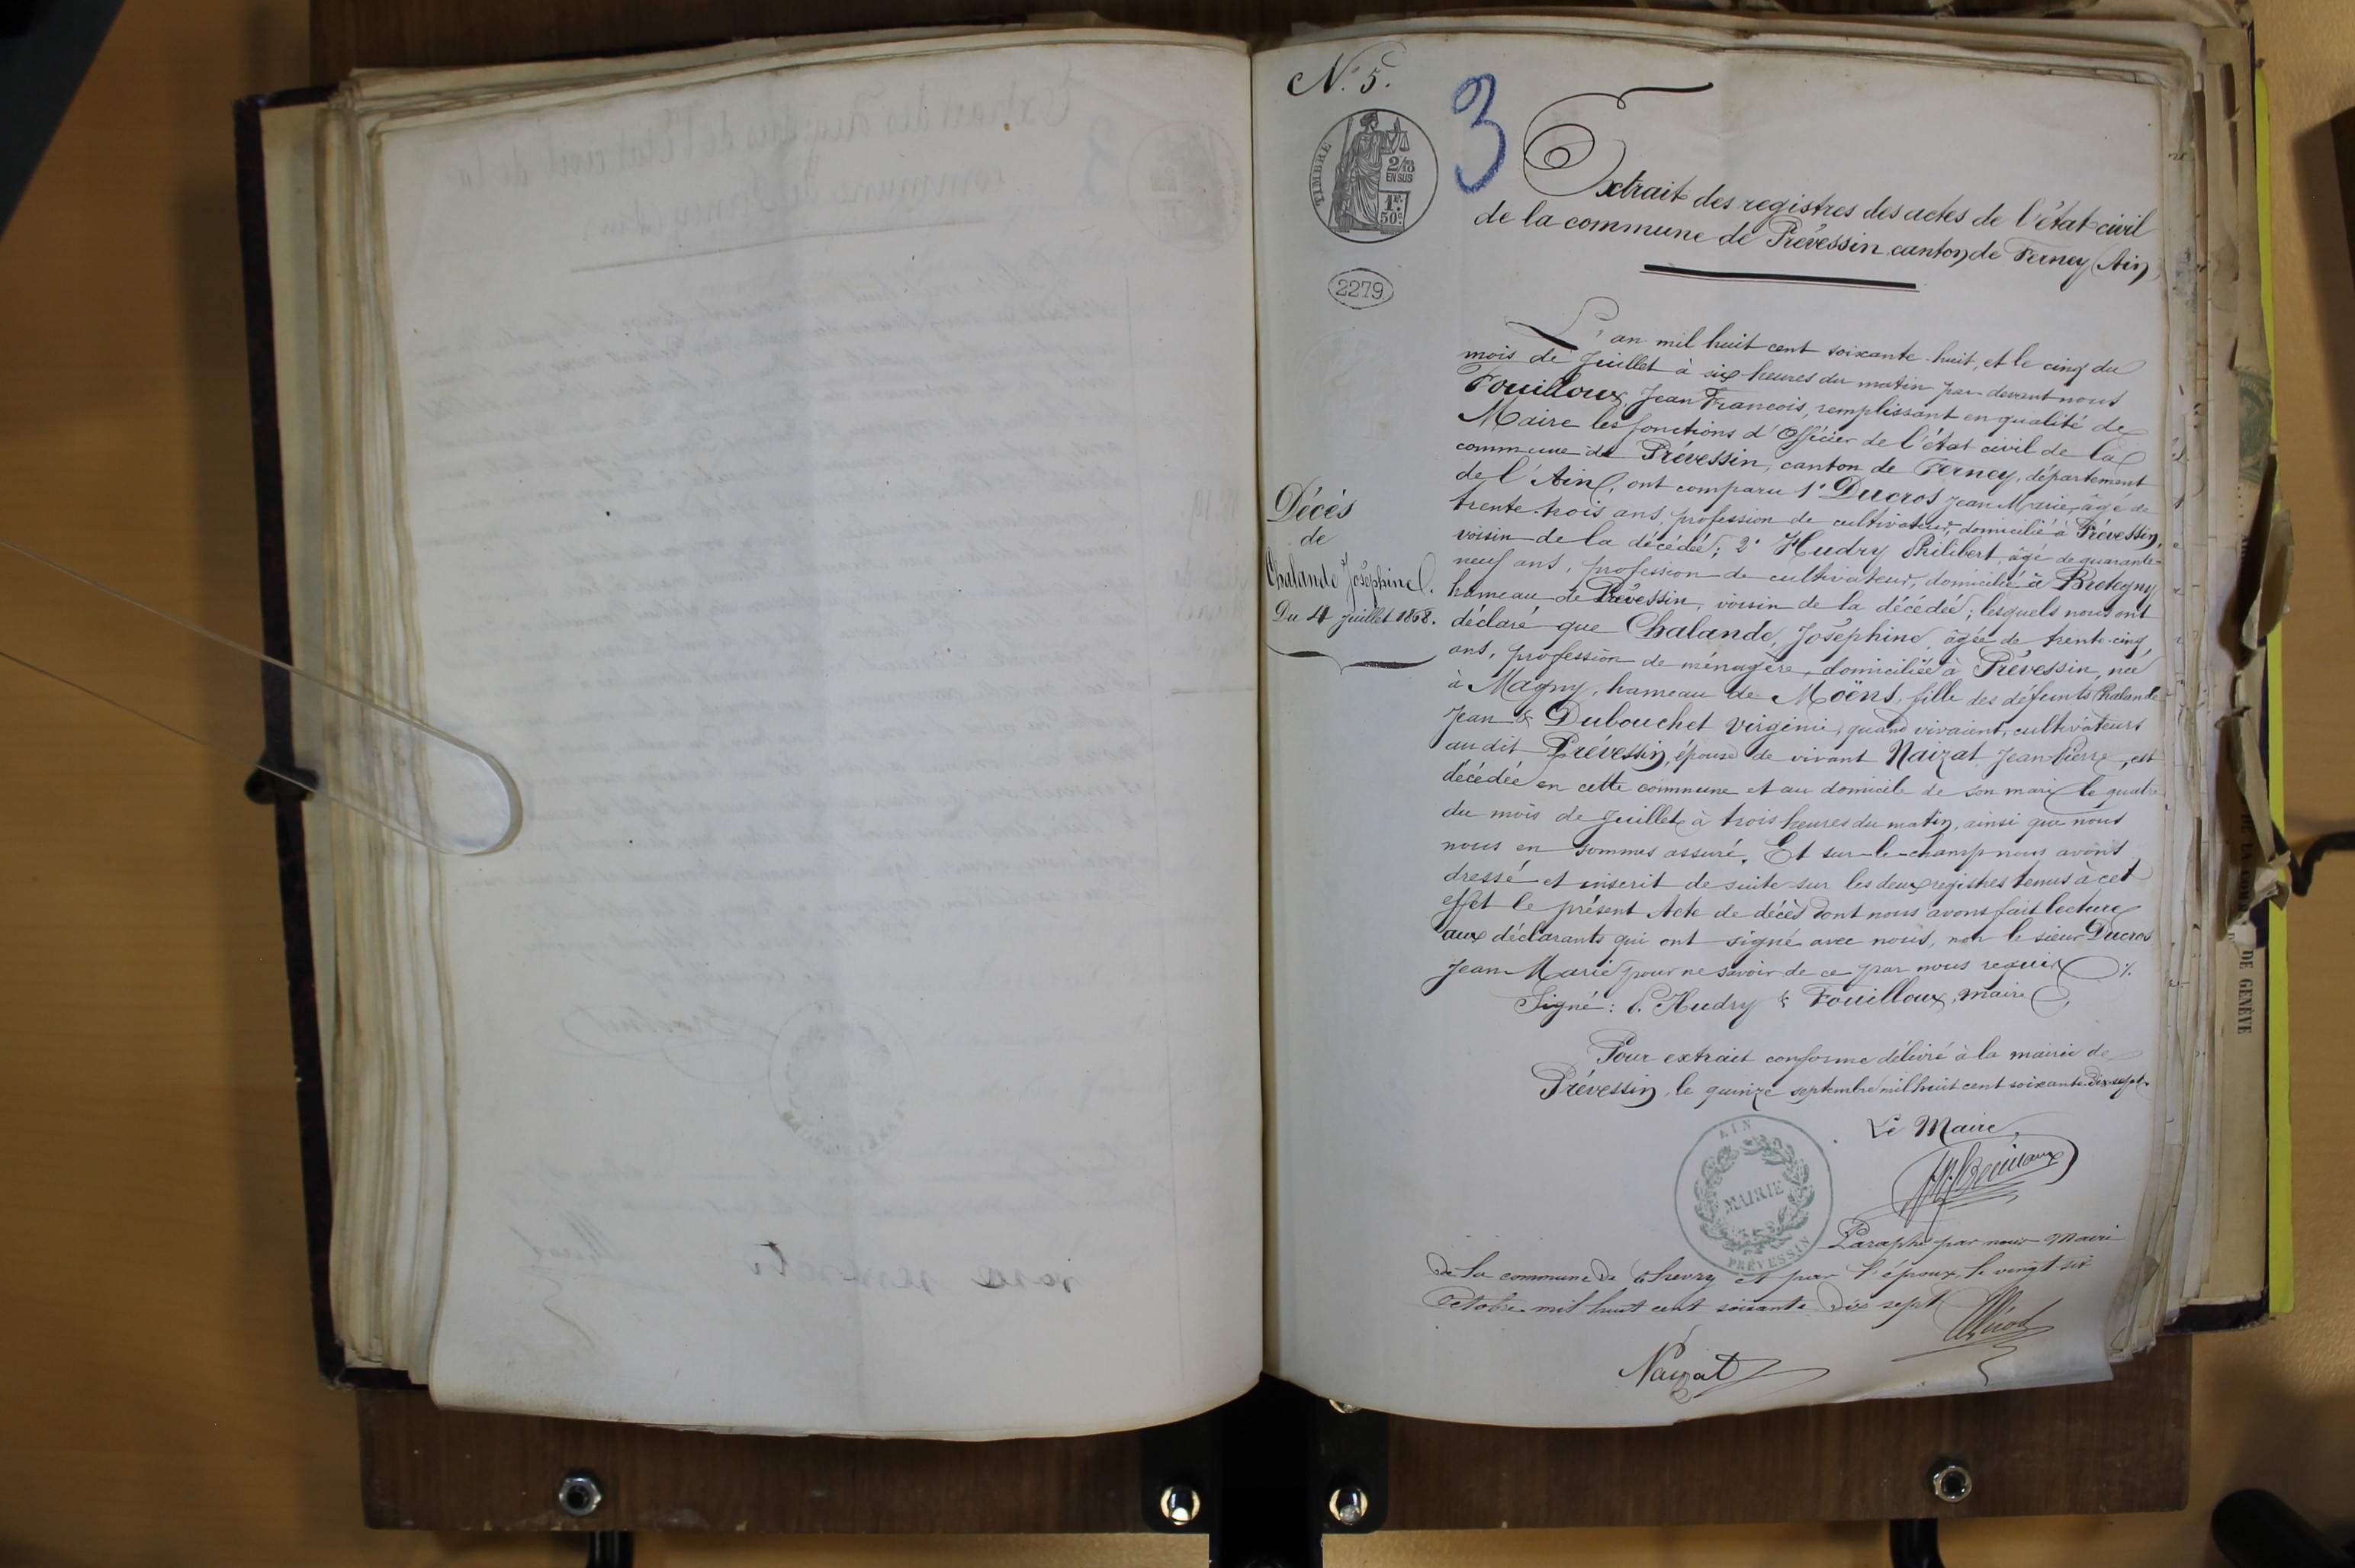 N.° 5.
3
TIMBRE
2/10
EN SUS
1F.
50c
2279
Extrait des registres des actes de l'état civil
de la commune de Prévessin canton de Ferney (Ain)
Décès
de
Chalande Joséphine.
Du 4 juillet 1868.
L'an mil huit cent soixante-huit, et le cinq du
mois de Juillet à six heures du matin par devant nous
Fouilloux, Jean François, remplissant en qualité de
Maire les fonctions d'Officier de l'état civil de la
commune de Prévessin, canton de Ferney, département
de l'Ain, ont comparu 1° Ducros Jean Marie, âgé de
trente-trois ans, profession de cultivateur, domicilié à Prévessin,
voisin de la décédée; 2° Hudry Philibert, âgé de quarante-
neuf ans, profession de cultivateur, domicilié à Bretegny
hameau de Prévessin, voisin de la décédée; lesquels nous ont
déclaré que Chalande, Joséphine, âgée de trente-cinq
ans, profession de ménagère, domiciliée à Prévessin, née
à Magny, hameau de Moëns, fille des défunts Chalande
Jean & Dubouchet Virginie, quand vivaient, cultivateurs
au dit Prévessin, épouse de vivant Naizat Jean-Pierre, est
décédée en cette commune et au domicile de son mari le quatre
du mois de Juillet à trois heures du matin, ainsi que nous
nous en sommes assuré. Et sur-le-champ nous avons
dressé et inscrit de suite sur les deux registres tenus à cet
effet le présent Acte de décès dont nous avons fait lecture
aux déclarants qui ont signé avec nous, non le sieur Ducros
Jean-Marie pour ne savoir de ce par nous requis
Signé: P. Hudry & Fouilloux, maire
Pour extrait conforme délivré à la mairie de
Prévessin, le quinze septembre mil huit cent soixante-dix-sept.
Le Maire,
AIN
MAIRIE
PRÉVESSIN
Paraphé par nous Maire
de la commune de Chevry et par l'époux le vingt six
Octobre mil huit cent soixante dix sept
Naizat
DE GENÈVE